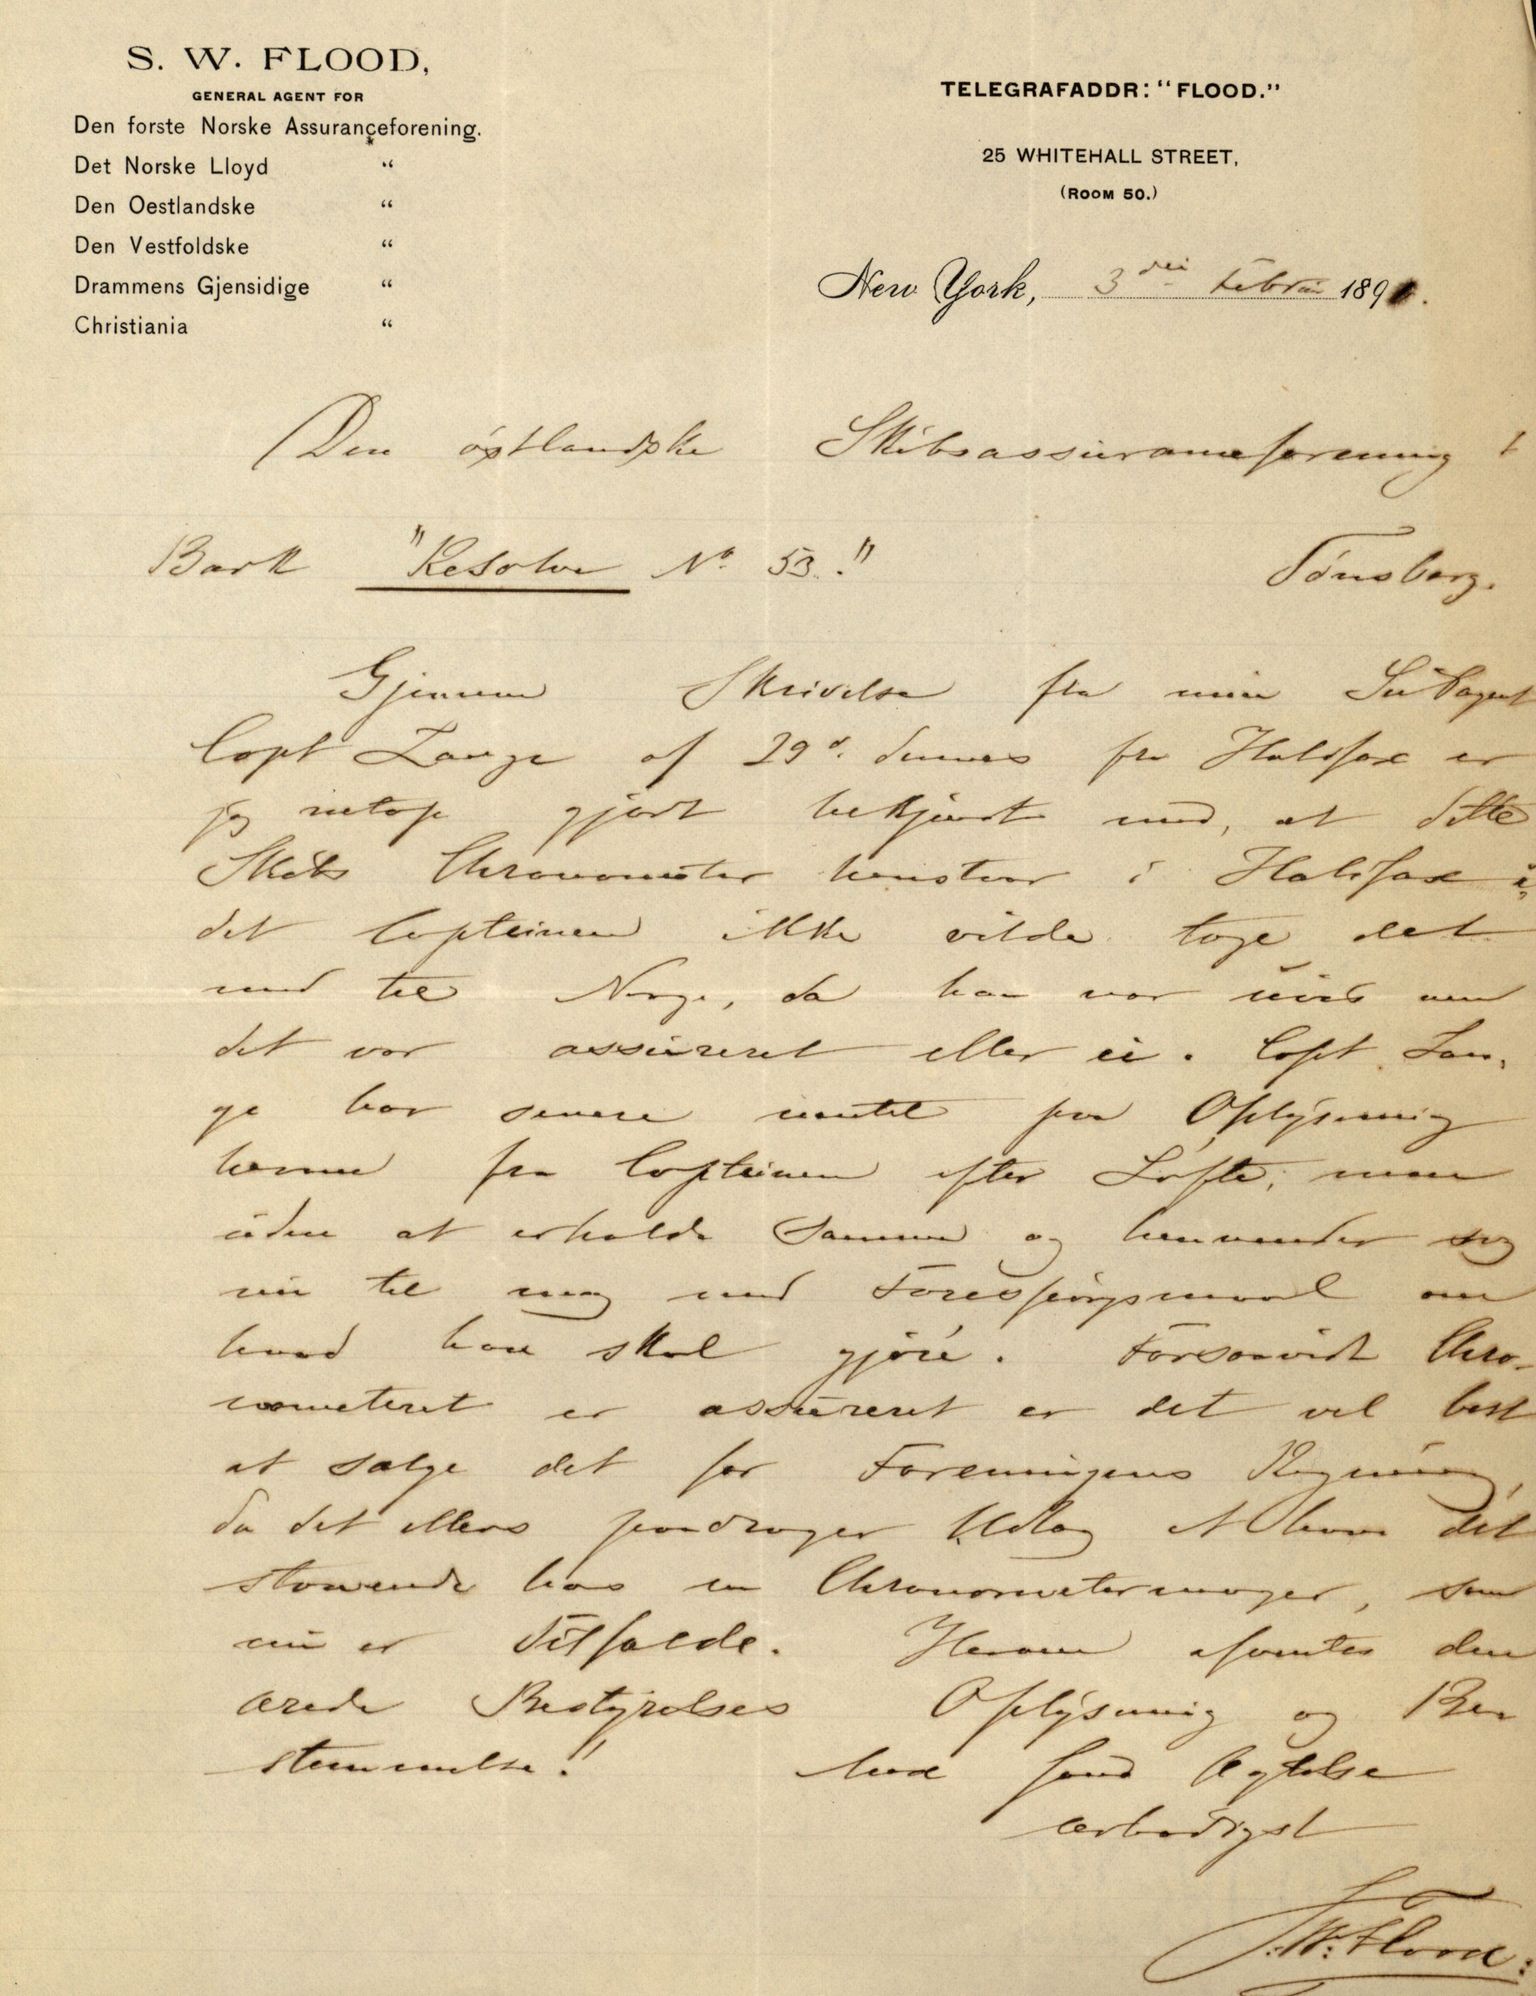 S. W. FLOOD,
GENERAL AGENT FOR
Den forste Norske Assuranceforening.
Det Norske Lloyd "
Den Oestlandske "
Den Vestfoldske "
Drammens Gjensidige "
Christiania "
TELEGRAFADDR: "FLOOD."
25 WHITEHALL STREET,
(ROOM 50.)
New York, 3die Februar 189
Den östlandske Skibsassuranceforening
Bark "Resolve No. 53."
Tönsberg.
Gjennem Skrivelse fra min Subagent
Capt Lange af 29d. dennes fra Halifax er
jeg netop gjort bekjendt med, at dette
Skibs Chronometer henstaar i Halifax i,
det Capteinen ikke vilde tage det
med til Norge, da han var uvis om
det var assureret eller ei. Capt. Lan,
ge har senere ventet paa Oplysning
herom fra Capteinen efter Löfte, men
uden at erholde samme og henvender sig
nu til mig med Forespörgsmaal om
hvad han skal gjöre. Forsaavidt Chro-
nometeret er assureret er det vel best
at sælge det for Foreningens Regning,
da det ellers paadrager Udlæg at have det
staaende hos en Chronometermager, som
nu er Tilfælde. Herom afventes den
ærede Bestyrelses Oplysning og Be
stemmelse!
Med sand Agtelse
ærbödigst
S. W. Flood.